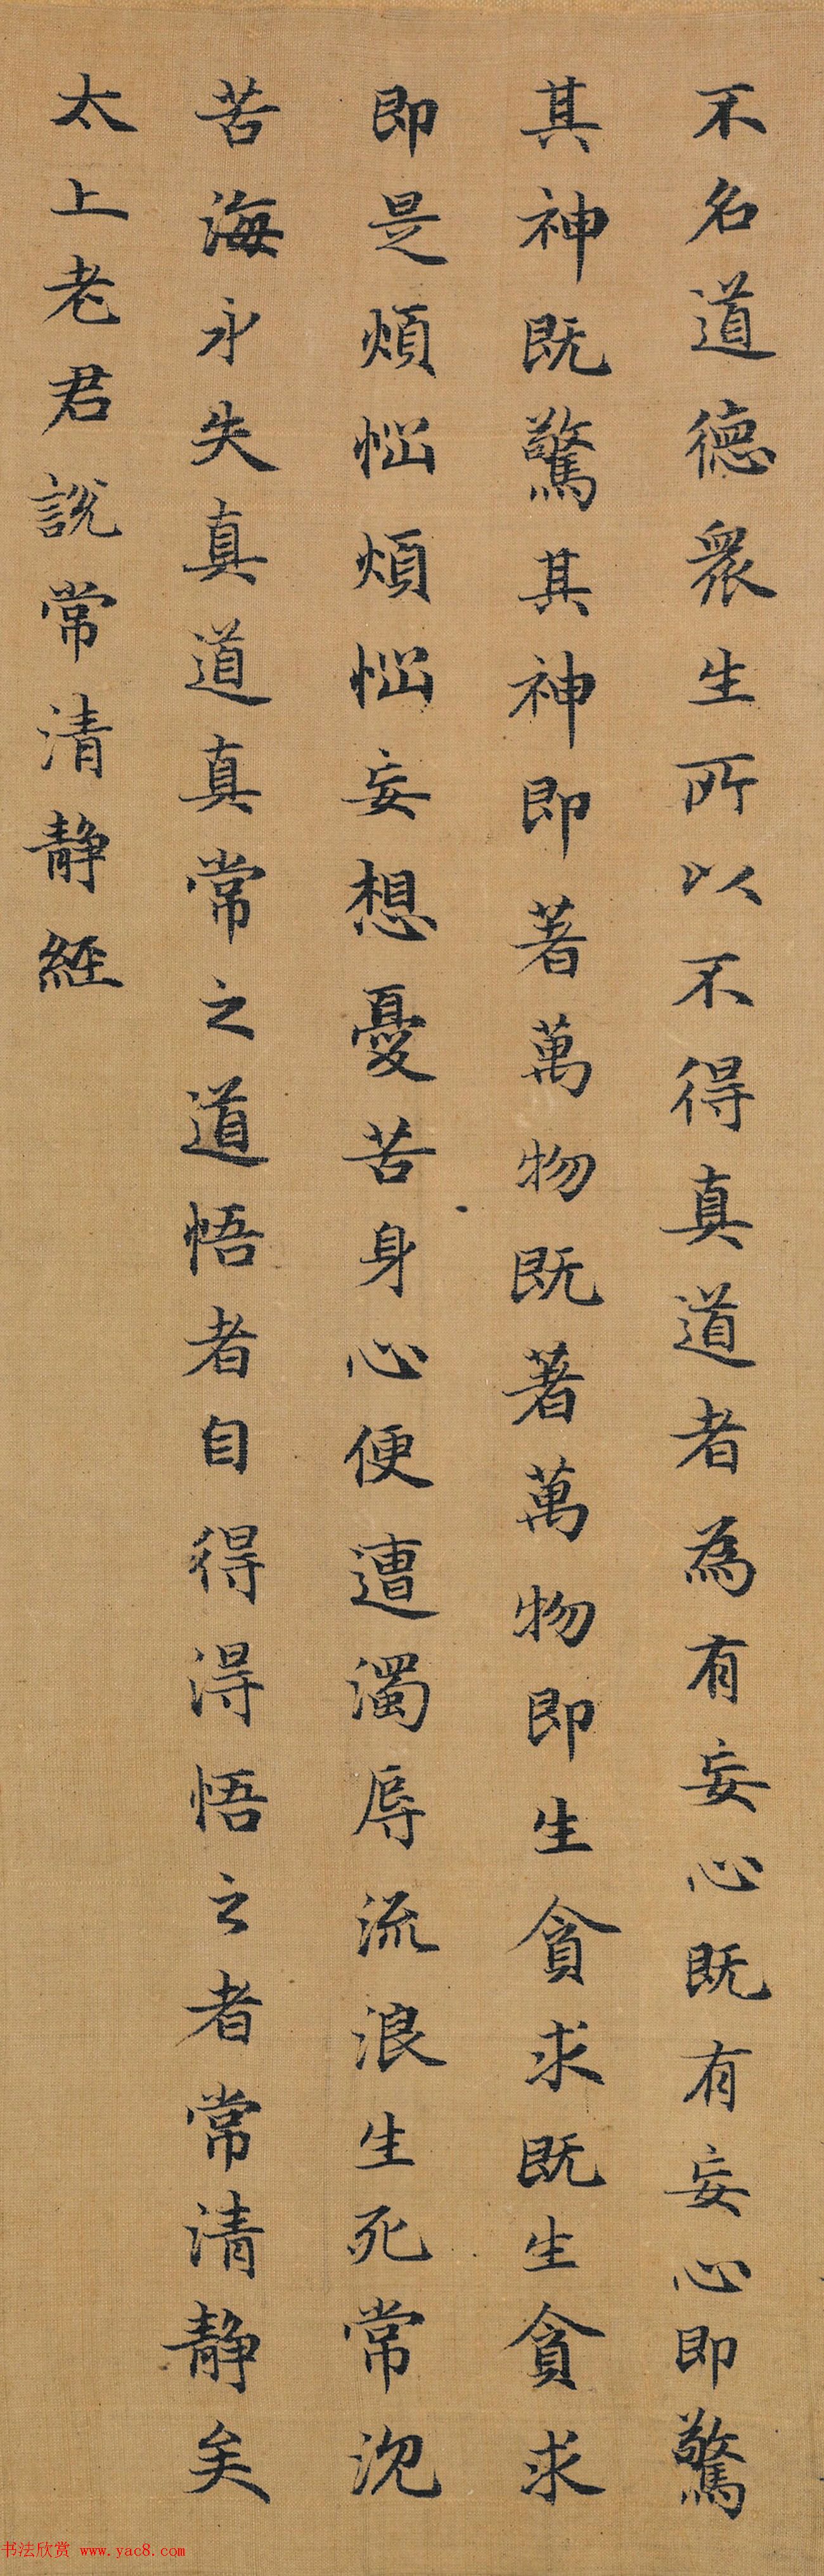 不名道德衆生所以不得真道者為有妄心既有妄心即驚
其神既驚其神即著萬物既著萬物即生貪求既生貪求
即是煩惱煩惱妄想憂苦身心便遭濁辱流浪生死常沉
苦海永失真道真常之道悟者自得得悟之者常清静矣
太上老君說常清静經
书法欣赏 www.yac8.com